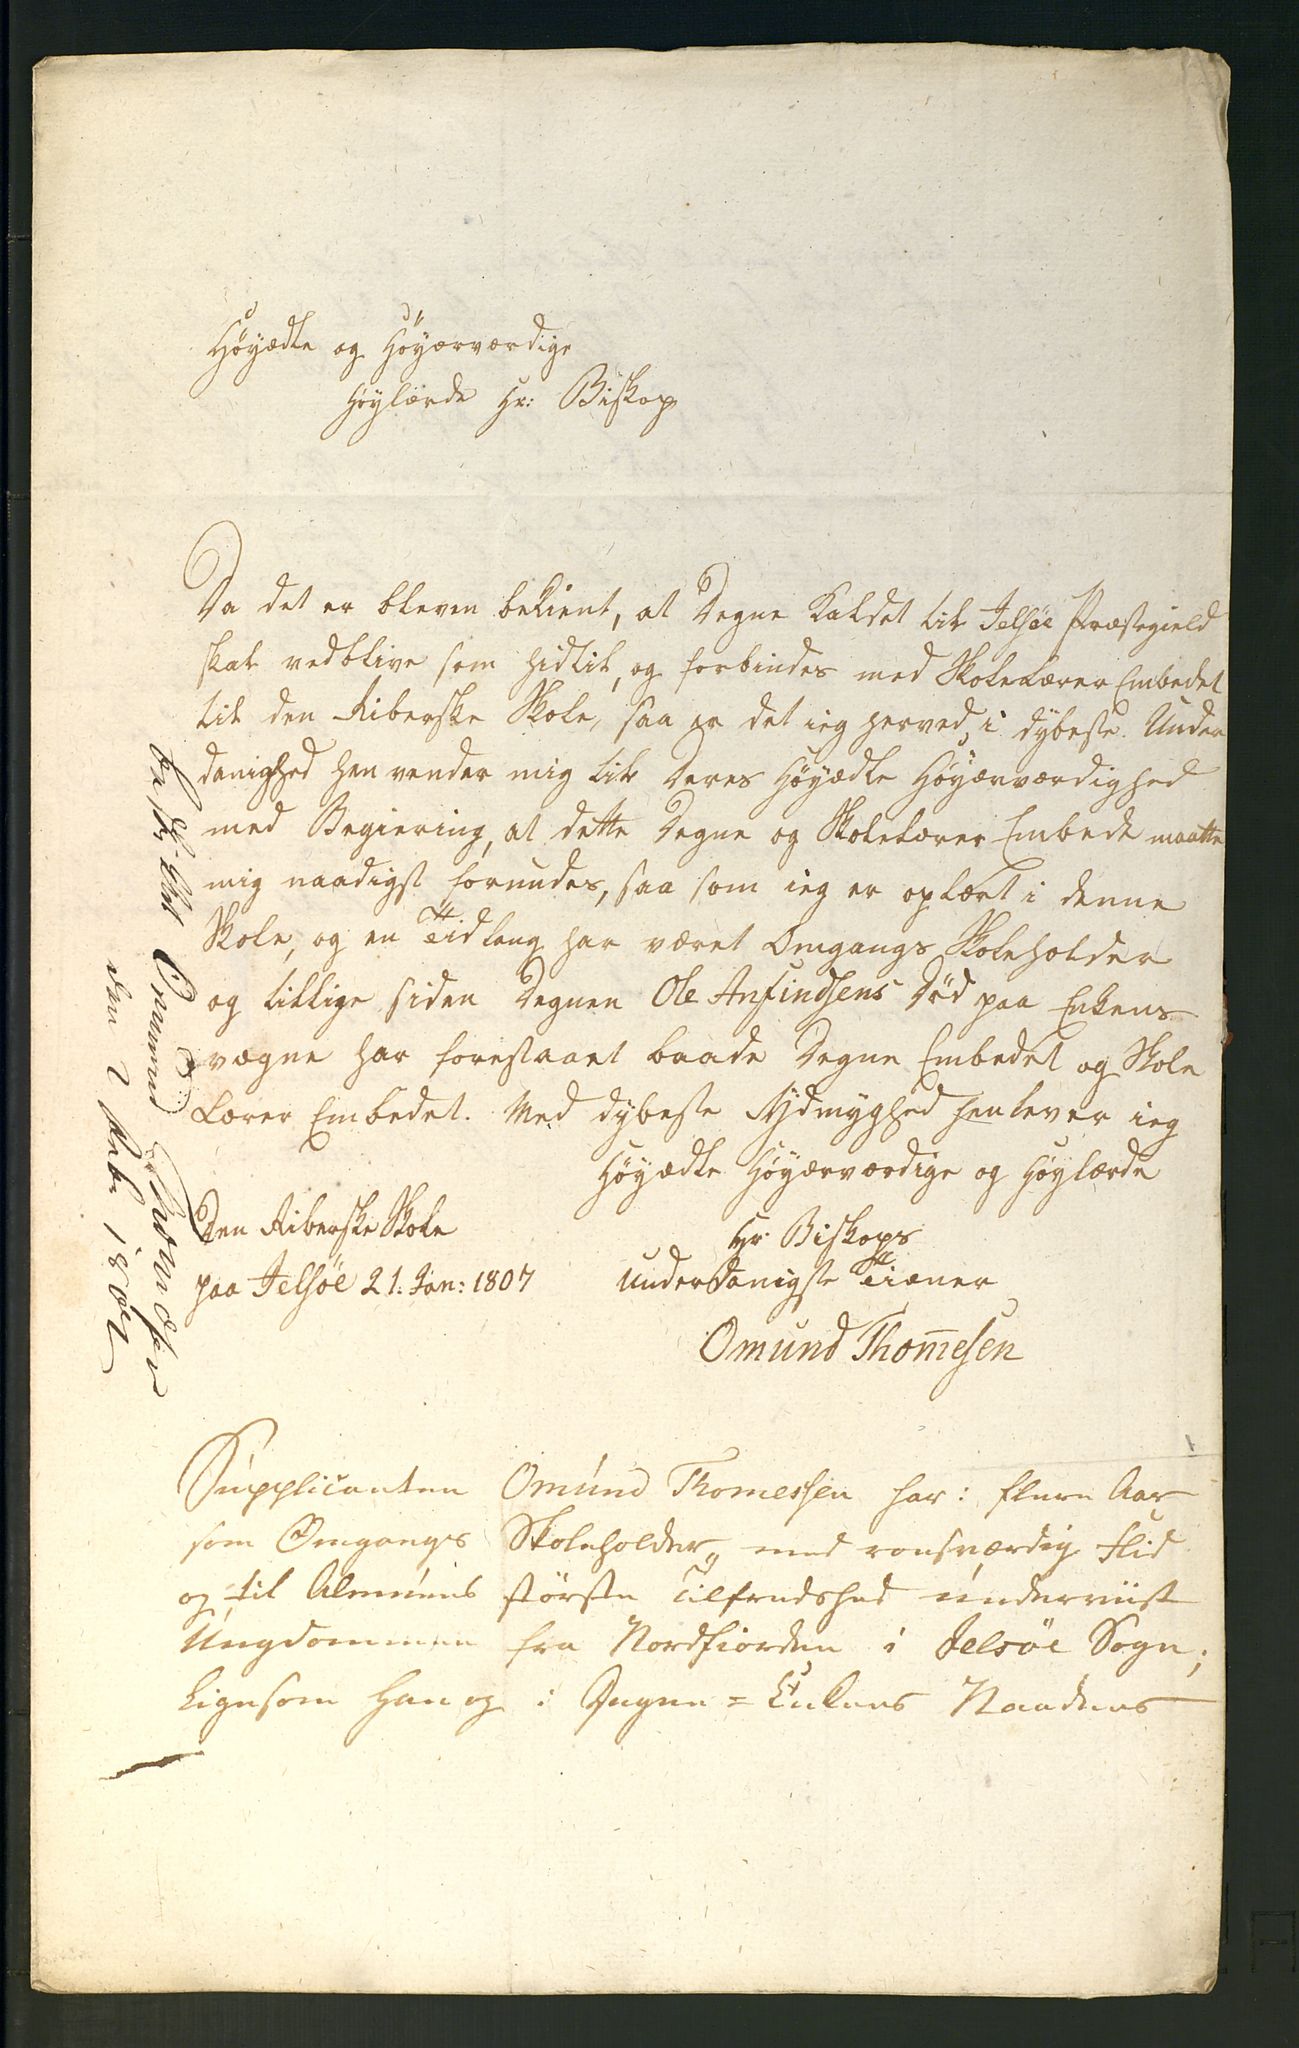 Höyædle og Höyærværdige
Höylærde Hr: Biskop
Da det er bleven bekient, at Degne Kaldet til Jelsöe Præstegield
skal vedblive som hidtil, og forbindes med Skolelærer Embedet
til den Riberske Skole, saa er det ieg herved, i dybeste Under
danighed hen vender mig til Deres Höyædle Höyærværdighed
med Begiering, at dette Degne og Skolelærer Embede maatte
mig naadigst forundes, saa som ieg er oplært i denne
Skole, og en Tid lang har været Omgangs Skoleholder
og tillige siden Degnen Ole Anfindsens Död paa Enkens
vægne har forestaaet baade Degne Embedet og Skole
Lærer Embedet. Med dybeste Ydmyghed henlever ieg
Höyædle Höyærværdige og Höylærde
Hr. Biskops
Den Riberske Skole
paa Jelsöe 21. Jan: 1807
underdanigste Tiæner
Omund Thomesen
beskikket Omund Thomesen
den 2 Febr 1807
Supplicanten Omund Thomessen har i flere Aar
som Omgangs Skoleholder, med roesværdig Flid
og til Almuens störste Tilfredshed underviist
Ungdommen fra Nordfiorden i Jelsöe Sogn;
ligesom han og i Degne = Enkens Naadens